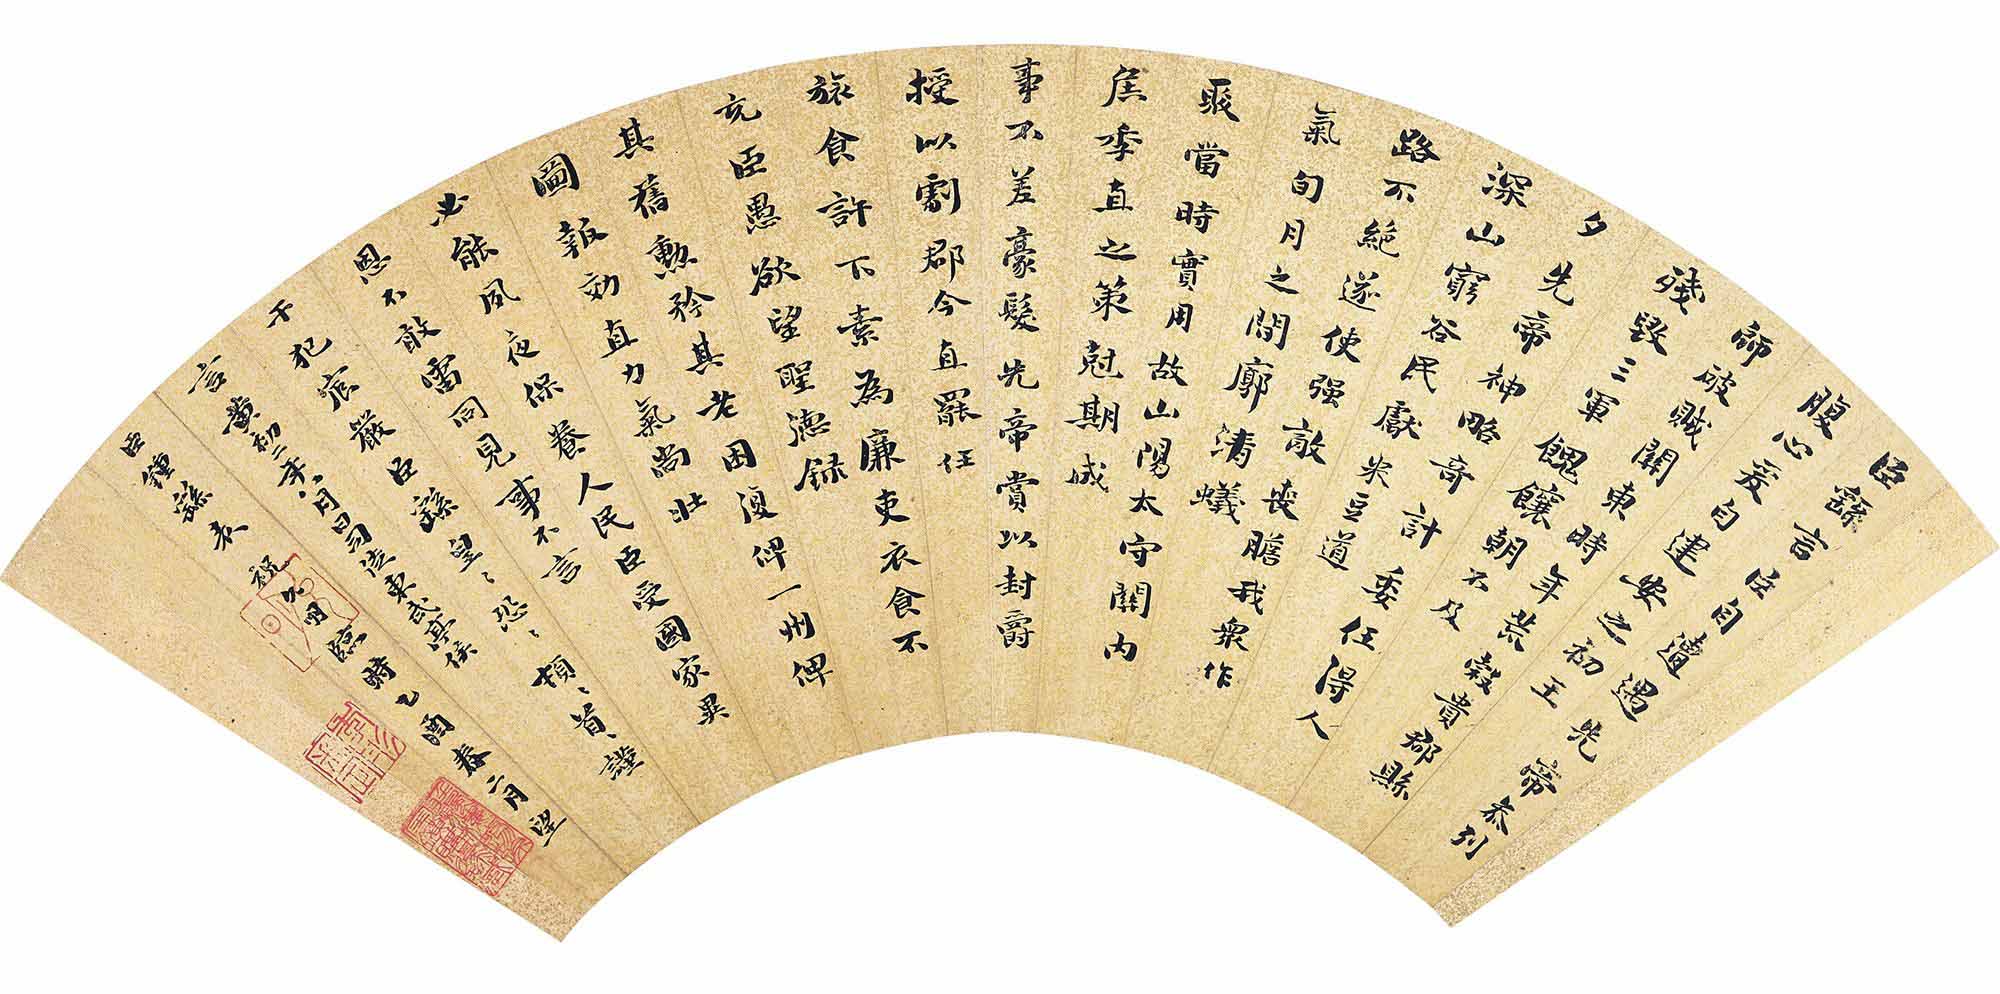 臣繇言臣自遭遇先帝忝列
腹心爰自建安之初王
師破賊關東時年荒穀貴郡縣
殘毀三軍餽饟朝不及
夕先帝神略奇計委任得人
深山窮谷民獻米豆道
路不絕遂使强敵喪膽我衆作
氣旬月之間廓清蟻
聚當時實用故山陽太守關内
侯季直之策尅期成
事不差豪髮先帝賞以封爵
授以劇郡今直罷任
旅食許下素為廉吏衣食不
充臣愚欲望聖德録
其舊勲矜其老困復俾一州俾
圖報効直力氣尚壯
必能夙夜保養人民臣受國家異
恩不敢雷同見事不言
干犯宸嚴臣繇皇〻恐〻頓〻首〻謹
言黃初二年八月日司徒東武亭侯
臣鍾繇表 祝允明臨時乙酉春二月望